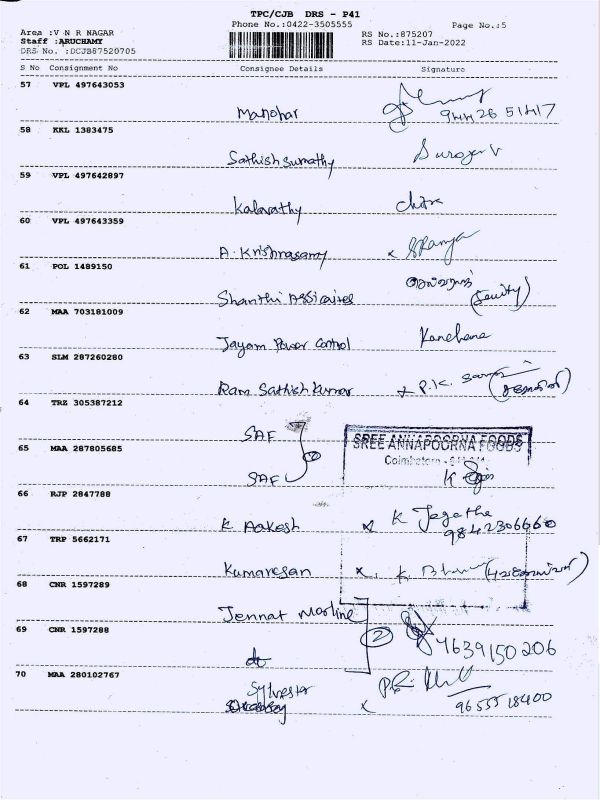 TPC/CJB DRS - P41
Phone No.:0422-3505555
Page No.:5
Area :V N R NAGAR
RS No.:875207
Staff :ARUCHAMY
RS Date:11-Jan-2022
DRS No. :DCJB87520705
S No Consignment No Consignee Details Signature
57 VPL 497643053
Manohar
9442651417
58 KKL 1383475
Sathish Sumathy
59 VPL 497642897
Kalavathy Chitra
60 VPL 497643359
A. Krishnasamy x
61 POL 1489150
Shanthi
62 MAA 703181009
Jayam Power Control Kanchana
63 SLM 287260280
Ram Sathish Kumar P.K.
64 TRZ 305387212
SAF
2
65 MAA 287805685
SREE ANNAPOORNA FOODS
Coimbatore
SAF K
66 RJP 2847788
K Aakash x K Jegatha
9842306660
67 TRP 5662171
Kumaresan x K
68 CNR 1597289
Jennat
69 CNR 1597288
2
do 4639150206
70 MAA 280102767
Sylvester
x 9655518400